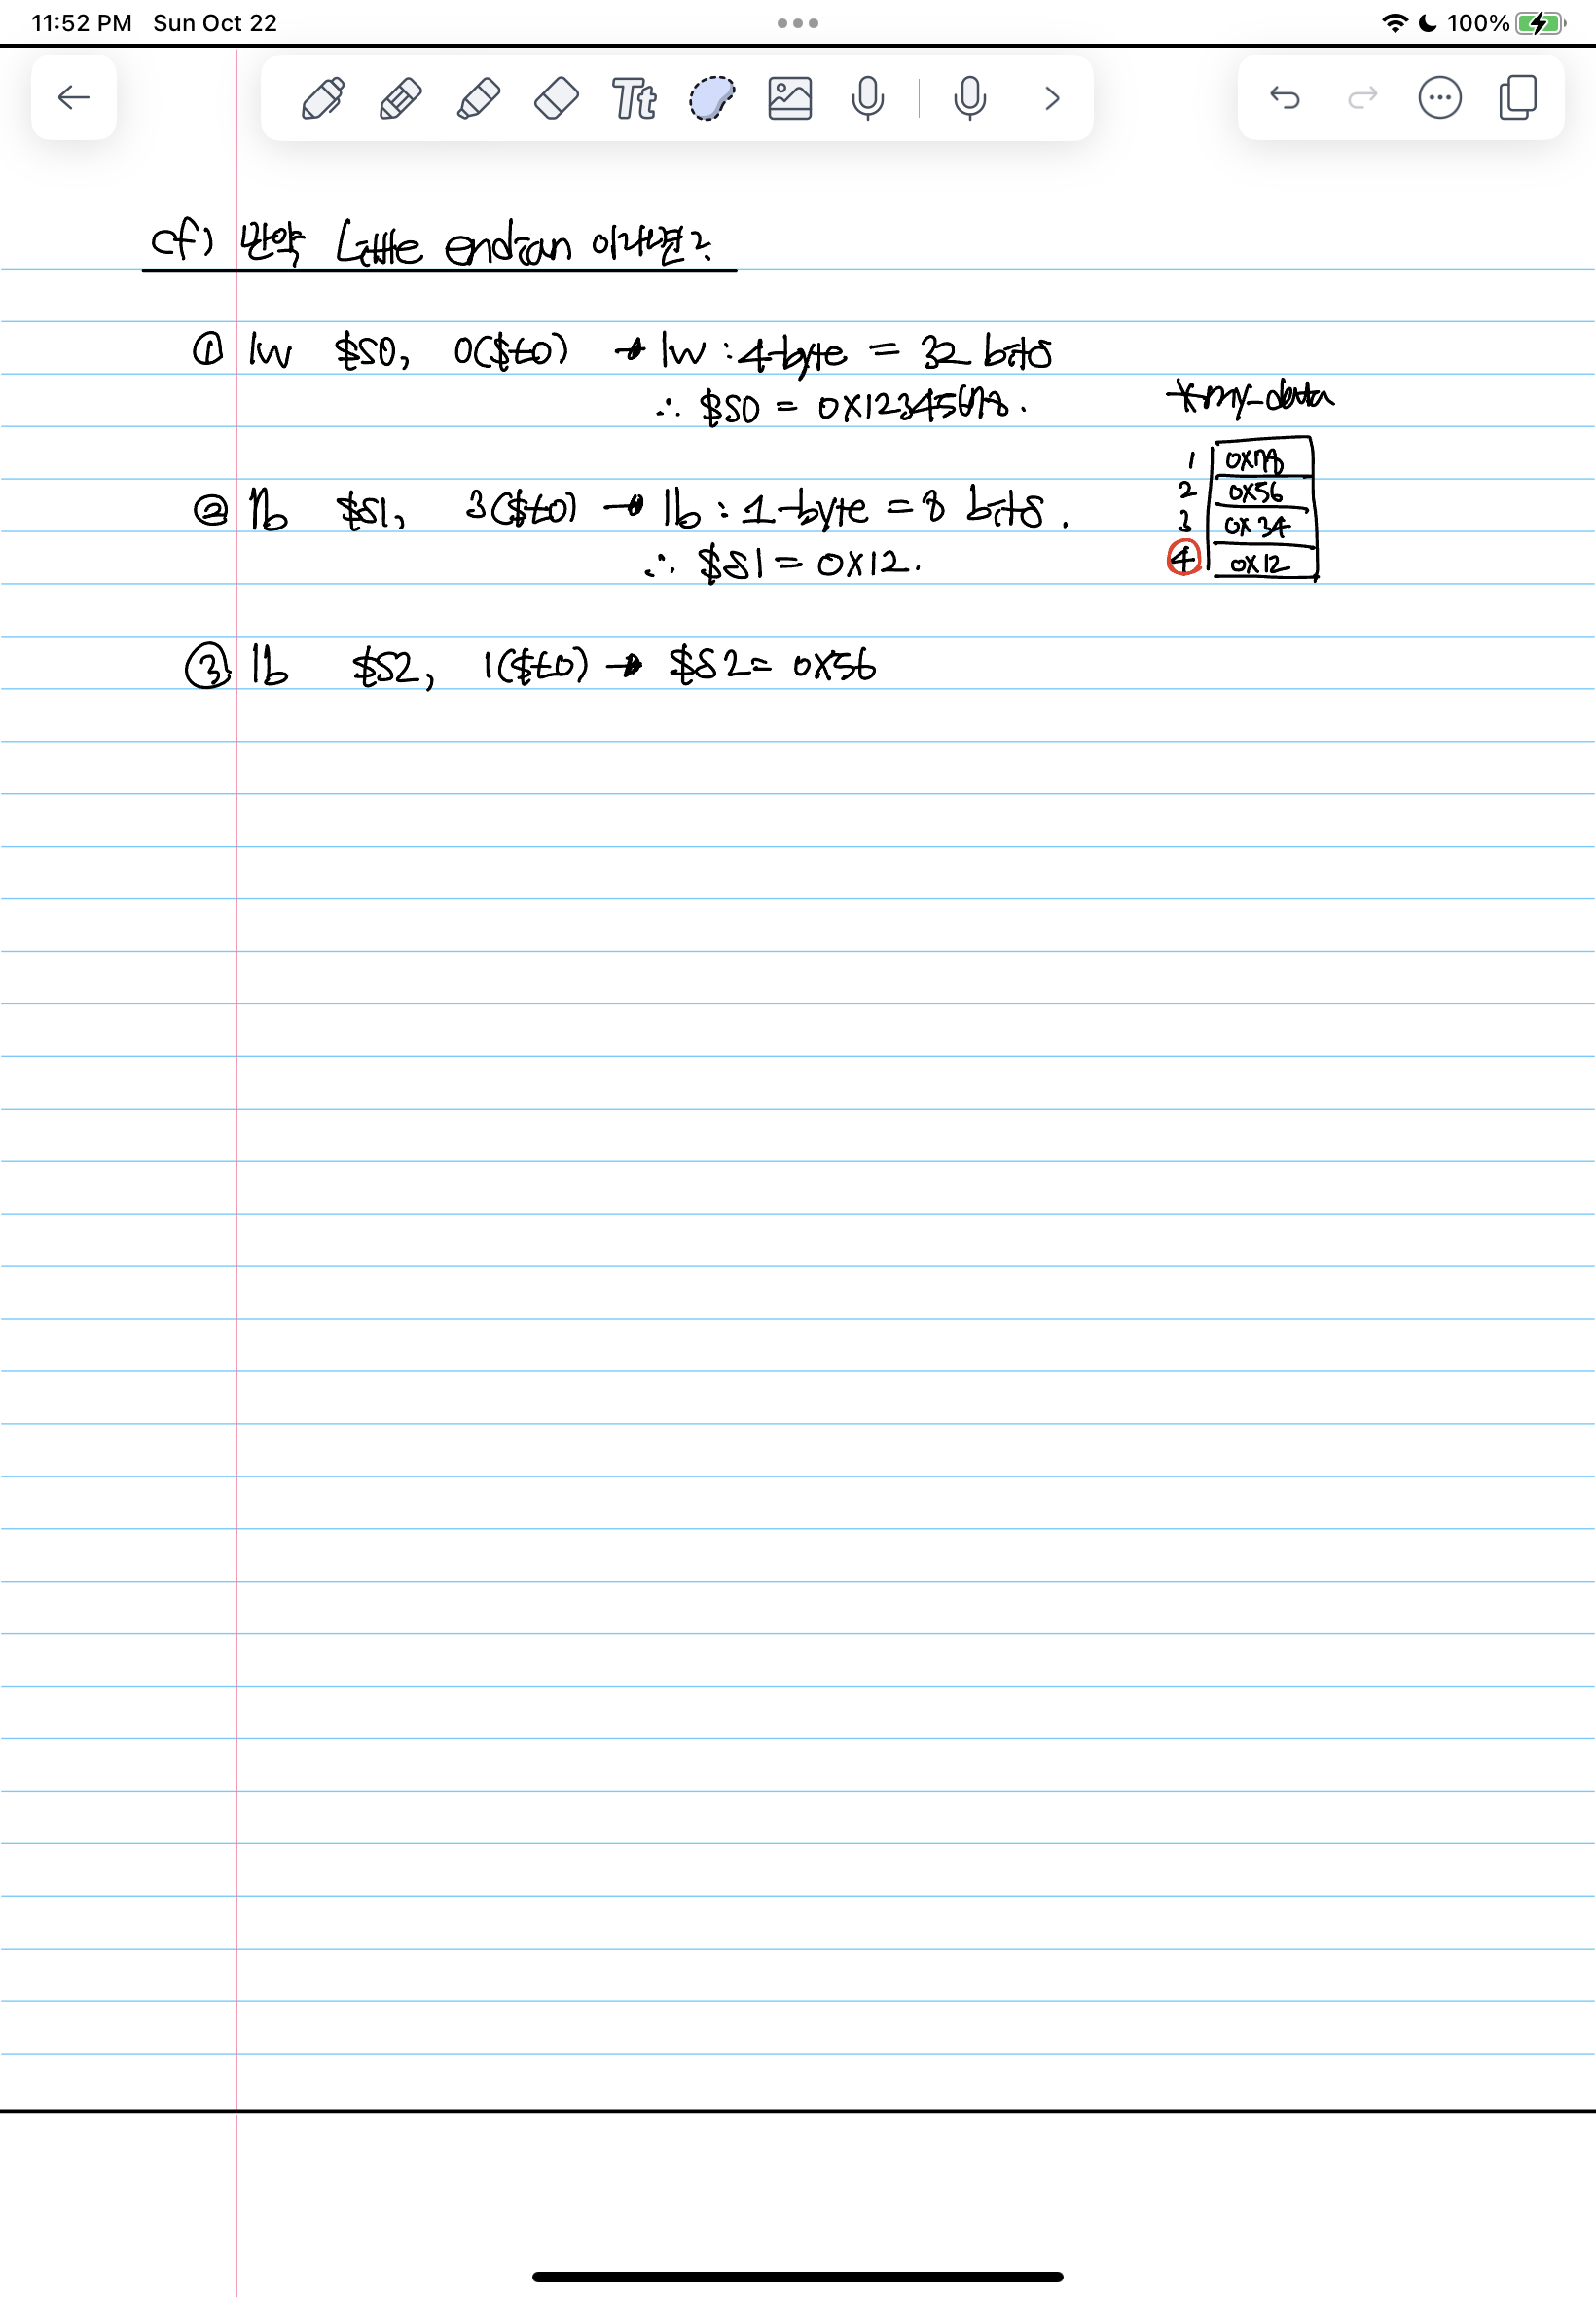 11:52 PM Sun Oct 22
100%
Tt
cf) 만약 Little endian 이라면?
① lw $s0, 0($t0) → lw : 4-byte = 32 bits
∴ $s0 = 0x12345678.
*my_data
1 0x78
2 0x56
3 0x34
4 0x12
② lb $s1, 3($t0) → lb : 1-byte = 8 bits.
∴ $s1 = 0x12.
③ lb $s2, 1($t0) → $s2 = 0x56